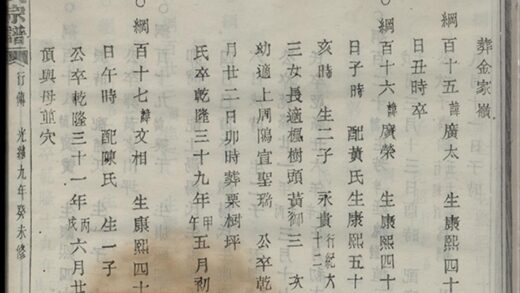 葬金家嶺
綱百十五 諱廣太 生康熙四十
日丑時卒
綱百十六 諱廣榮 生康熙四十
日子時 配黃氏生康熙五十
亥時 生二子 永貴 行紀六十二 次
三女長適楓樹頭黃 三 次
幼適上周鴞宣聖瑞 公卒乾
月廿二日卯時葬栗樹坪
氏卒乾隆三十九年甲午五月初
綱百十七 諱文相 生康熙四十
日午時 配陳氏 生一子
公卒乾隆三十一年丙戌六月廿
頂與母並穴
宗譜 行傳 光緒九年癸未修